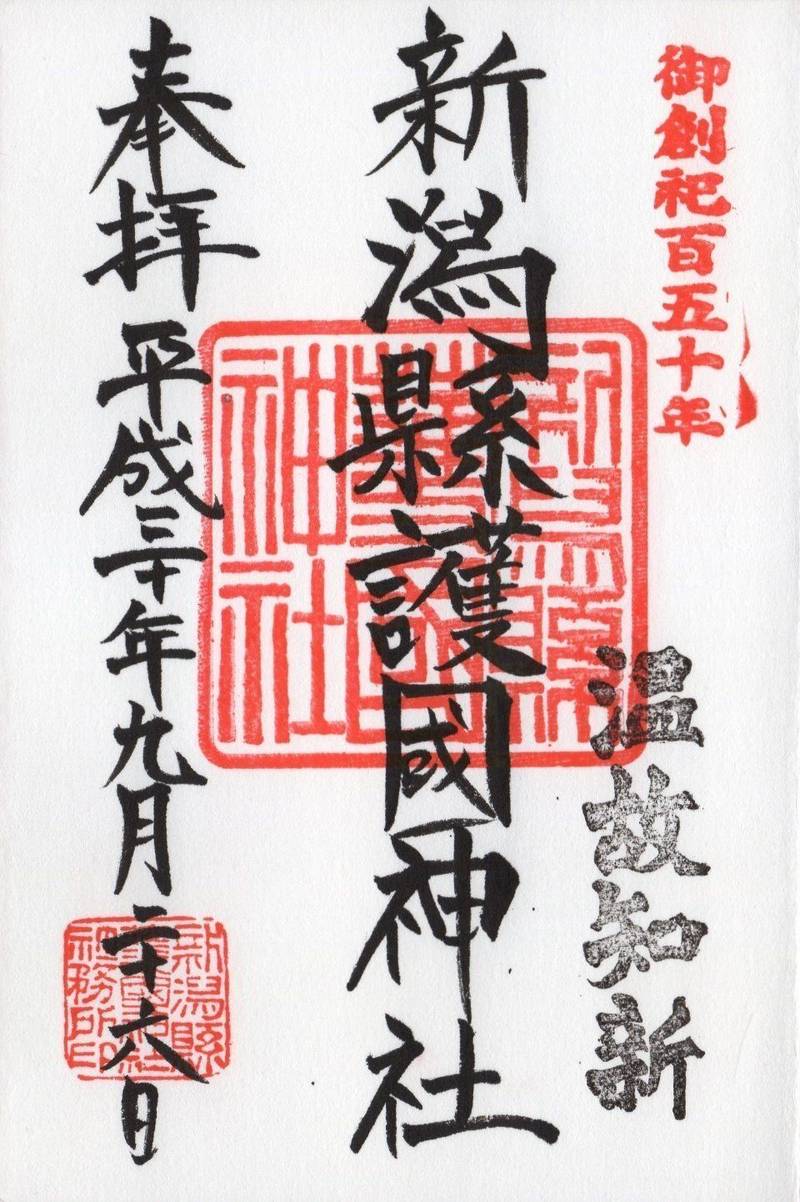 御創祀百五十年
温故知新
新潟縣護國神社
新潟縣護國神社
奉拝
平成三十年九月二十六日
新潟縣護國神社社務所印